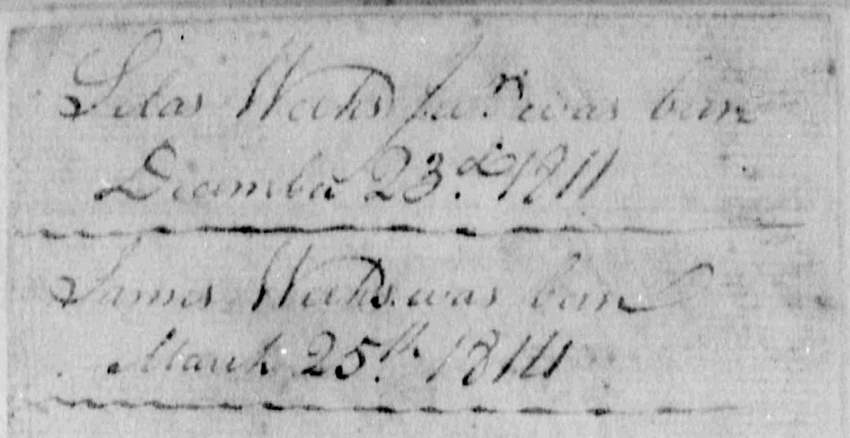 Silas Weeks Junr was born
December 23.d 1811
James Weeks was born
March 25th 1814